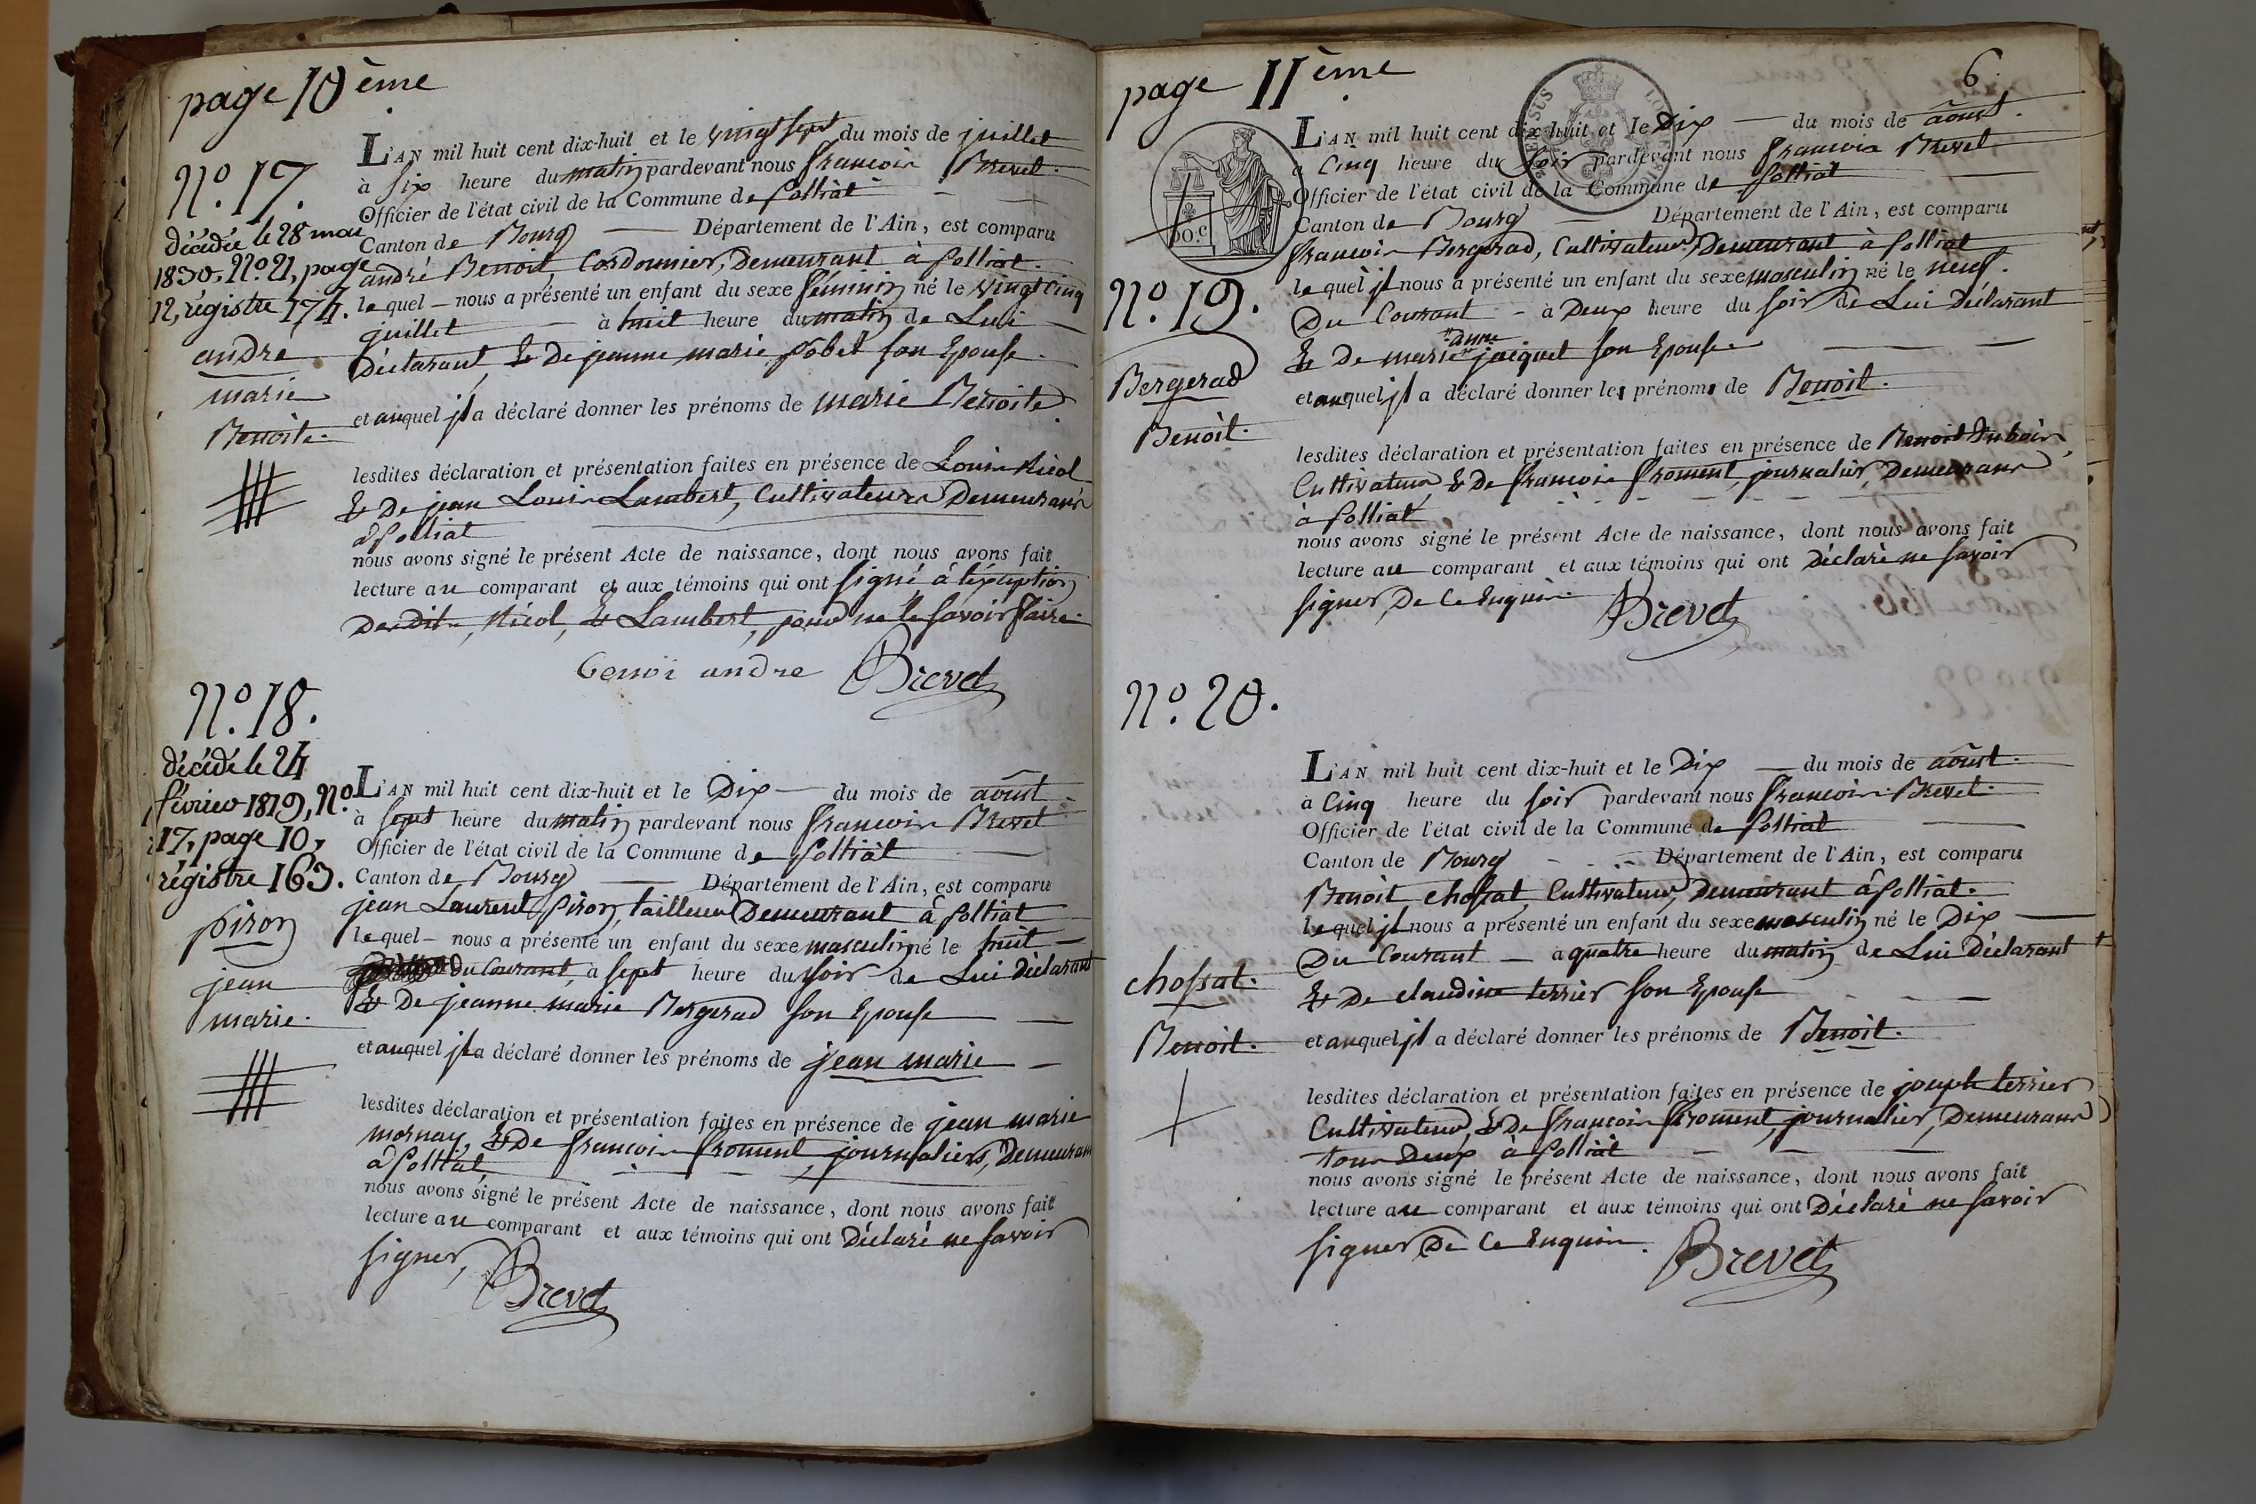 page 10ème
N.º 17.
décédée le 28 mai
1830, N.º 21, page
12, régistre 174.
andré
marie
Benoite.
L'AN mil huit cent dix-huit et le vingt sept du mois de juillet
à six heure du matin pardevant nous francois Brevet.
Officier de l'état civil de la Commune de polliat
Canton de Bourg Département de l'Ain, est comparu
andré Benoit, Cordonnier, Demeurant à polliat.
le quel nous a présenté un enfant du sexe féminin né le vingt cinq
juillet à huit heure du matin de Lui
Déclarant & De jeanne marie pobel son Epouse.
et auquel jl a déclaré donner les prénoms de marie Benoite
lesdites déclaration et présentation faites en présence de Louis Nicol
& De jean Louis Lambert, Cultivateurs Demeurans
à polliat
nous avons signé le présent Acte de naissance, dont nous avons fait
lecture au comparant et aux témoins qui ont signé à l'éxception
Desdits, Nicol, & Lambert, pour ne le savoir faire.
benoi andre Brevet
N.º 18.
décédé le 24
février 1819, N.º
17, page 10,
régistre 163.
piron
jean
marie.
L'AN mil huit cent dix-huit et le Dix du mois de aôust
à sept heure du matin pardevant nous francois Brevet
Officier de l'état civil de la Commune de polliat
Canton de Bourg Département de l'Ain, est comparu
jean Laurent piron, tailleur Demeurant à polliat
le quel nous a présenté un enfant du sexe masculin né le huit
du Courant, à sept heure du soir de Lui déclarant
& De jeanne marie Bergerad son Epouse
et auquel jl a déclaré donner les prénoms de jean marie
lesdites déclaration et présentation faites en présence de jean marie
mornay, & De francois froment, journaliers, Demeurans
à polliat,
nous avons signé le présent Acte de naissance, dont nous avons fait
lecture au comparant et aux témoins qui ont Déclaré ne savoir
signer, Brevet
page 11ème
6.
N.º 19.
Bergerad
Benoit.
L'AN mil huit cent dix-huit et le Dix du mois de aôust.
à Cinq heure du soir pardevant nous francois Brevet.
Officier de l'état civil de la Commune de polliat
Canton de Bourg Département de l'Ain, est comparu
francois Bergerad, Cultivateur, Demeurant à polliat
le quel jl nous a présenté un enfant du sexe masculin né le neuf.
Du Courant à Deux heure du soir de Lui Déclarant
anne
& De marie jacquet son Epouse
et auquel jl a déclaré donner les prénoms de Benoit.
lesdites déclaration et présentation faites en présence de Benoit Dubois
Cultivateur & De francois froment, journalier, Demeurans
à polliat
nous avons signé le présent Acte de naissance, dont nous avons fait
lecture au comparant et aux témoins qui ont Déclaré ne savoir
signer, De Ce Enquis. Brevet
N.º 20.
chossat.
Benoit.
L'AN mil huit cent dix-huit et le Dix du mois de aôust.
à Cinq heure du soir pardevant nous francois Brevet.
Officier de l'état civil de la Commune de polliat
Canton de Bourg Département de l'Ain, est comparu
Benoit chossat, Cultivateur, Demeurant à polliat.
le quel jl nous a présenté un enfant du sexe masculin né le Dix
Du Courant à quatre heure du matin de Lui Déclarant
& De claudine terrier son Epouse
et auquel jl a déclaré donner les prénoms de Benoit.
lesdites déclaration et présentation faites en présence de joseph terrier
Cultivateur, & De francois froment, journalier, Demeurans
tous Deux à polliat
nous avons signé le présent Acte de naissance, dont nous avons fait
lecture au comparant et aux témoins qui ont Déclaré ne savoir
signer, De Ce Enquis. Brevet